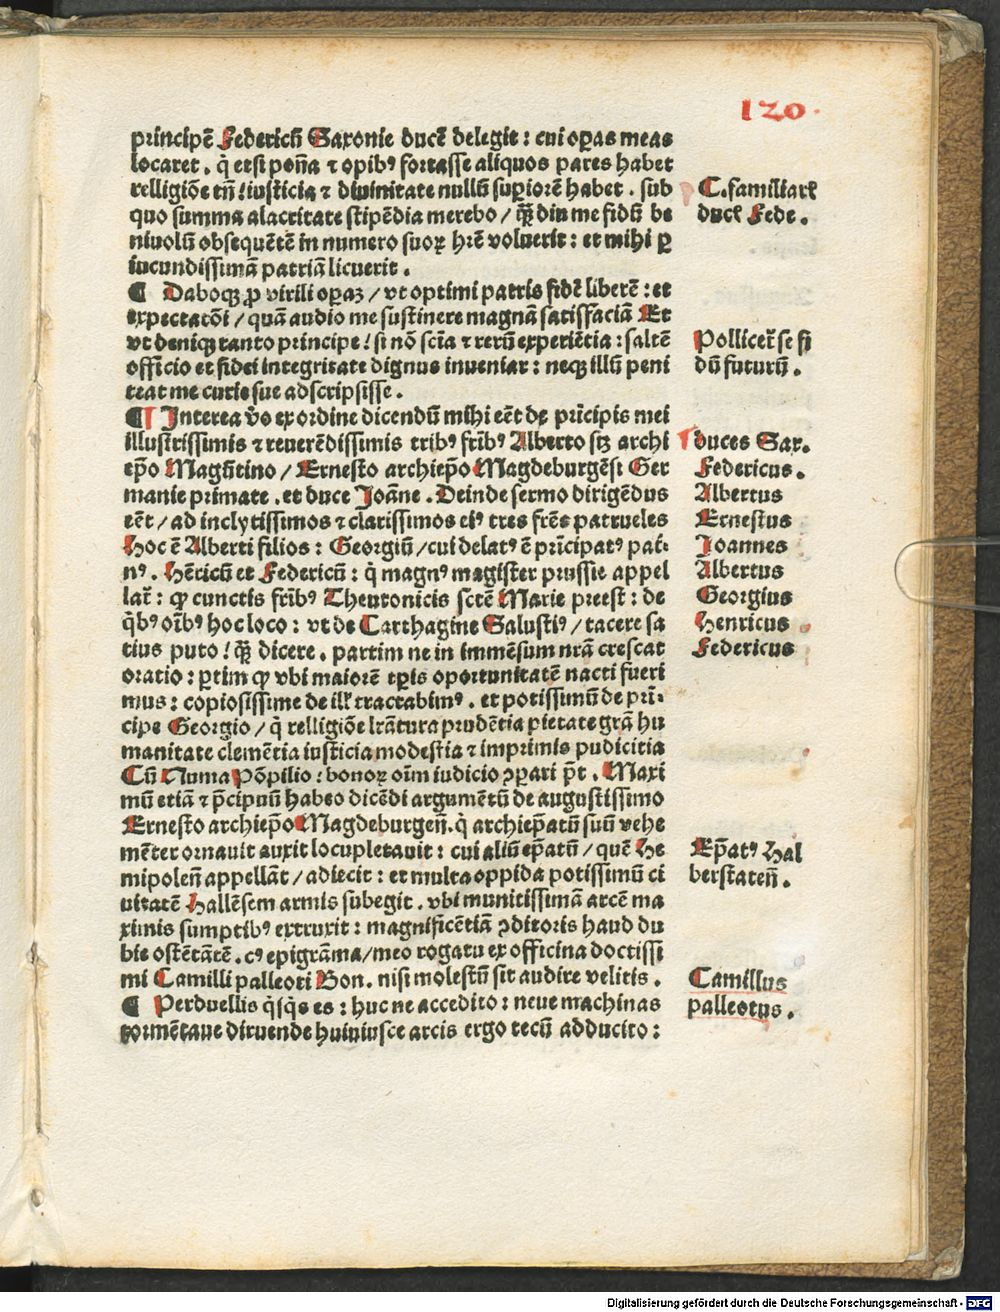 120.
principē Federicū Saxonie ducē delegie: cui oꝑas meas
locaret. q̇ etsi pōn̄a ⁊ opibꝰ fortasse aliquos pares habet
relligiōe tn̄! iusticia ⁊ diuinitate nullū suꝑiorē habet. sub
quo summa alacritate stipēdia merebo / qꝫ̄ diu me fidū be
niuolū obsequētē in numero suoꝝ hr̄e voluerit: et mihi ꝑ
iucundissimā patriā licuerit.
C. familiarē
ducē Fede.
¶ Daboqꝫ ꝓ virili oꝑaꝫ / vt optimi patris fidē liberē: et
expectatōi / quā audio me sustinere magnā satisfaciā Et
vt deniqꝫ tanto principe! si nō sc̄ia ⁊ rerū experiētia: saltē
officio et fidei integritate dignus inueniar: neqꝫ illū peni
teat me curie sue adscripsisse.
Pollicet᷑ se fi
dū futurū.
¶ Interea v̄o ex ordine dicendū mihi eēt de pr̄icipis mei
illustrissimis ⁊ reuerēdissimis tribꝰ fr̄ibꝰ Alberto sꝫ archi
ep̄o Magūtino / Ernesto archiep̄o Magdeburgēsi Ger
manie primate. et duce Joāne. Deinde sermo dirigēdus
eēt / ad inclytissimos ⁊ clarissimos eiꝰ tres fr̄es patrueles
Hoc ē Alberti filios: Georgiū / cui delatꝰ ē pr̄icipatꝰ pat᷑-
nꝰ. Hēricū et Federicū: q̇ magnꝰ magister prussie appel
lat᷑: ꝙ cunctis fr̄ibꝰ Theutonicis sctē Marie preest: de
q̇bꝰ oībꝰ hoc loco: vt de Carthagine Salustiꝰ / tacere sa
tius puto! qꝫ̄ dicere. partim ne in immēsum nr̄a crescat
oratio: ꝑtim ꝙ vbi maiorē tꝑis oportunitatē nacti fueri
mus: copiosissime de ill᷑ tractabimꝰ. et potissimū de pr̄i-
cipe Georgio / q̇ relligiōe lr̄atura prudētia pietate gr̄a hu
manitate clemētia iusticia modestia ⁊ imprimis pudicitia
Cū Numa Pōpilio: bonoꝝ oīm iudicio ꝯparari pt̄. Maxi
mū etiā ⁊ p̄cipuū habeo dicēdi argumētū de augustissimo
Ernesto archiep̄o Magdeburgeñ. q̇ archiep̄atū suū vehe
mēter ornauit auxit locupletauit: cui aliū ep̄atū / quē He
mipoleñ appellāt / adiecit: et multa oppida potissimū ci
uitatē Hallēsem armis subegit. vbi munitissimā arcē ma
ximis sumptibꝰ extruxit: magnificētiā ꝯditoris haud du
bie ostētātē. cꝰ epigrāma / meo rogatu ex officina doctissi
mi Camilli palleoti Bon. nisi molestū sit audire velitis.
¶ Perduellis q̇sq̇s es: huc ne accedito: neue machinas
tormētaue diruende huiuiusce arcis ergo tecū adducito:
duces Sax.
Federicus.
Albertus
Ernestus
Joannes
Albertus
Georgius
Henricus
Federicus
Ep̄atꝰ Hal
berstateñ.
Camillus
palleotus.
Digitalisierung gefördert durch die Deutsche Forschungsgemeinschaft - DFG